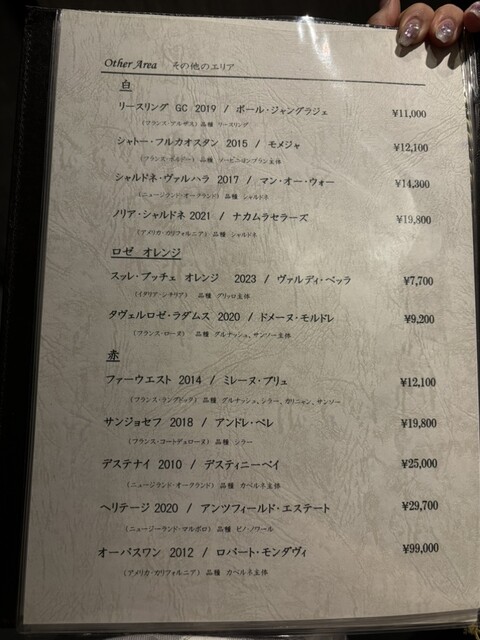 Other Area その他のエリア
白
リースリング GC 2019 / ポール・ジャングラジェ ¥11,000
(フランス・アルザス) 品種 リースリング
シャトー・フルカオスタン 2015 / モメジャ ¥12,100
(フランス・ボルドー) 品種 ソービニヨンブラン主体
シャルドネ・ヴァルハラ 2017 / マン・オー・ウォー ¥14,300
(ニュージランド・オークランド) 品種 シャルドネ
ノリア・シャルドネ 2021 / ナカムラセラーズ ¥19,800
(アメリカ・カリフォルニア) 品種 シャルドネ
ロゼ オレンジ
スッレ・ブッチェ オレンジ 2023 / ヴァルディ・ベッラ ¥7,700
(イタリア・シチリア) 品種 グリッロ主体
タヴェルロゼ・ラダムス 2020 / ドメーヌ・モルドレ ¥9,200
(フランス・ローヌ) 品種 グルナッシュ、サンソー主体
赤
ファーウエスト 2014 / ミレーヌ・ブリュ ¥12,100
(フランス・ラングドック) 品種 グルナッシュ、シラー、カリニャン、サンソー
サンジョセフ 2018 / アンドレ・ペレ ¥19,800
(フランス・コートデュローヌ) 品種 シラー
デステナイ 2010 / デスティニーベイ ¥25,000
(ニュージランド・オークランド) 品種 カベルネ主体
ヘリテージ 2020 / アンツフィールド・エステート ¥29,700
(ニュージーランド・マルボロ) 品種 ピノ・ノワール
オーパスワン 2012 / ロバート・モンダヴィ ¥99,000
(アメリカ・カリフォルニア) 品種 カベルネ主体